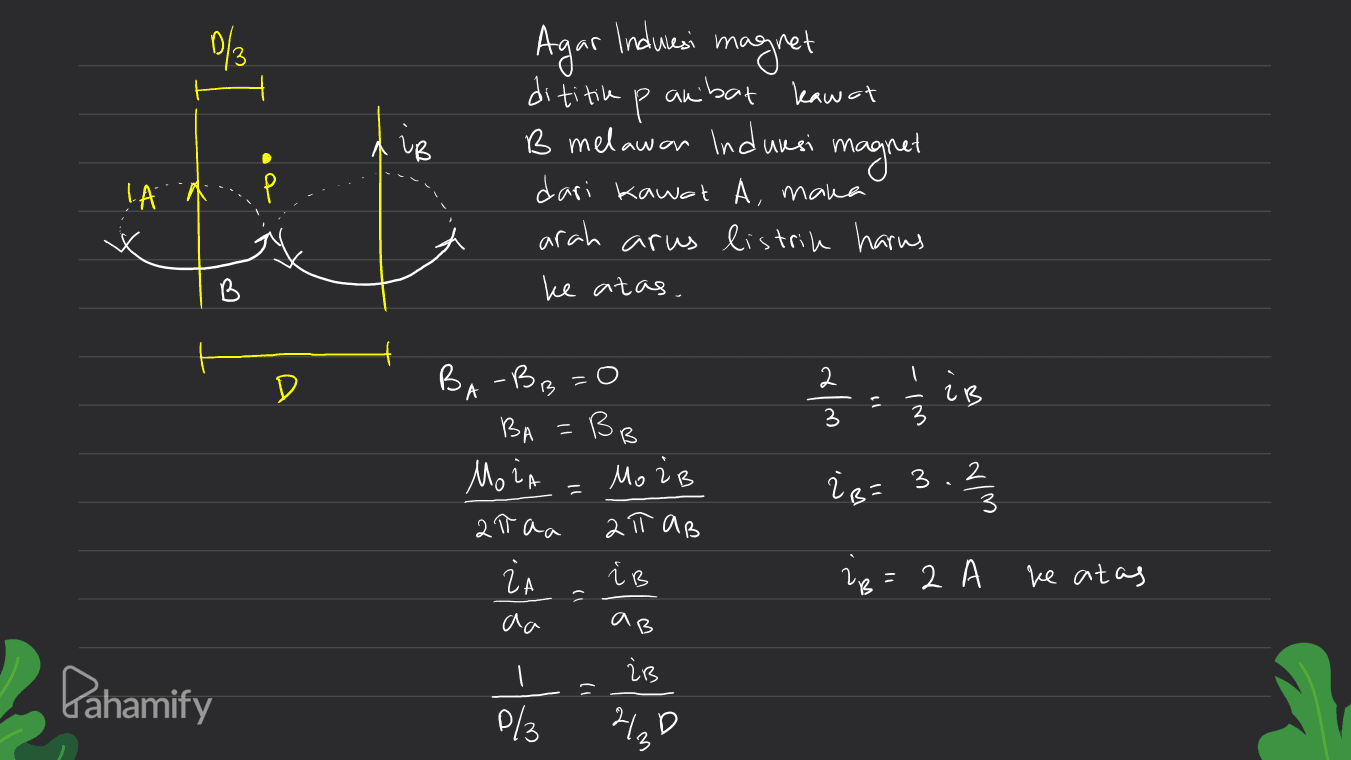 D/3
iB
1A
P
B
D
Agar Induksi magnet
dititik p akibat kawat
B melawan Induksi magnet
dari kawat A, maka
arah arus listrik harus
ke atas.
BA - BB = 0
BA = BB
μ0 iA / 2π aa = μ0 iB / 2π aB
iA / aa = iB / aB
1 / D/3 = iB / 2/3 D
2/3 = 1/3 iB
iB = 3 . 2/3
iB = 2 A ke atas
Pahamify